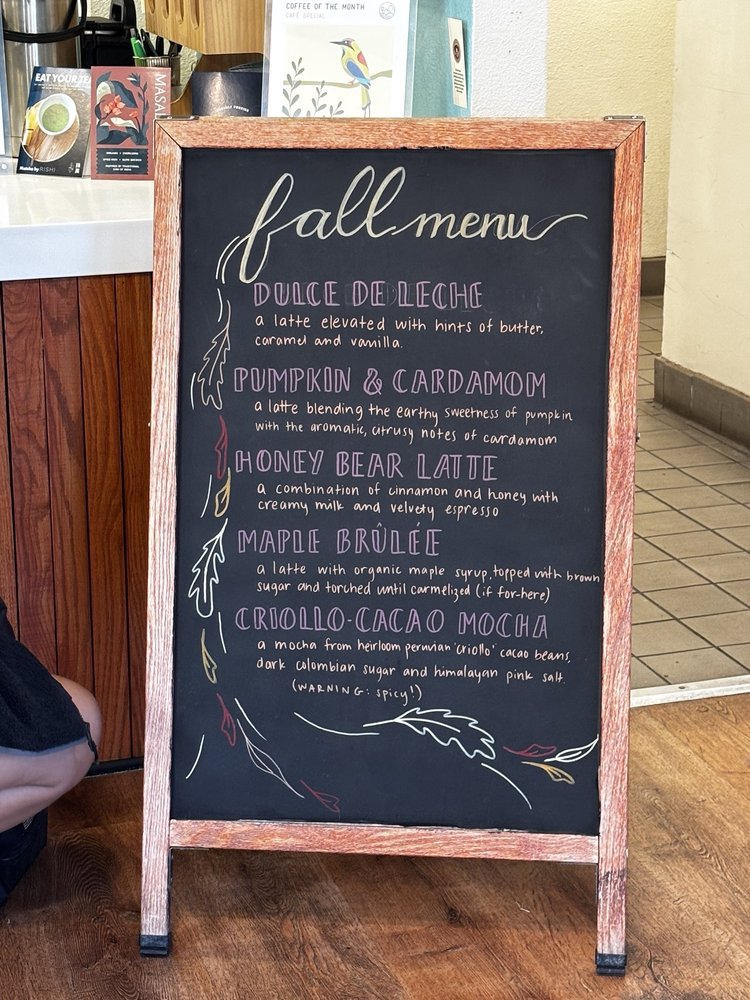 COFFEE OF THE MONTH
CAFÉ SPECIAL
EAT YOUR TEA
MASA
Matcha by RISHI
fall menu
DULCE DE LECHE
a latte elevated with hints of butter,
caramel and vanilla.
PUMPKIN & CARDAMOM
a latte blending the earthy sweetness of pumpkin
with the aromatic, citrusy notes of cardamom
HONEY BEAR LATTE
a combination of cinnamon and honey with
creamy milk and velvety espresso
MAPLE BRÛLÉE
a latte with organic maple syrup, topped with brown
sugar and torched until carmelized (if for-here)
CRIOLLO-CACAO MOCHA
a mocha from heirloom peruvian 'criollo' cacao beans,
dark colombian sugar and himalayan pink salt.
(WARNING: spicy!)